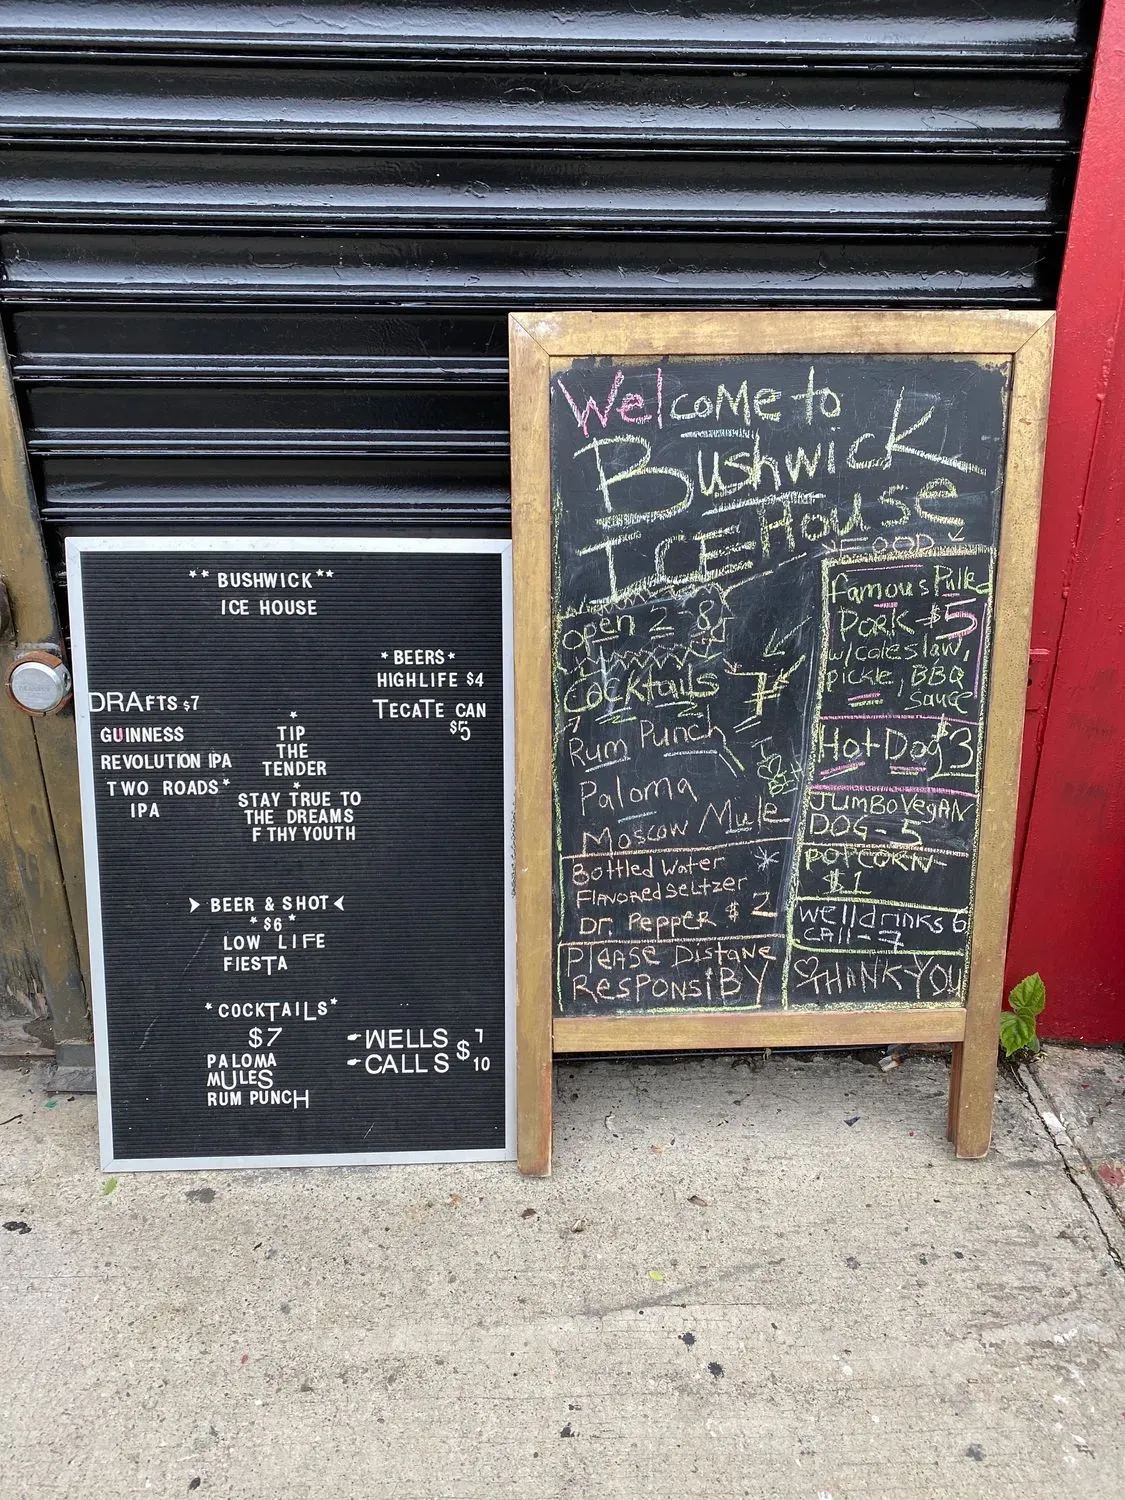 ** BUSHWICK **
ICE HOUSE
* BEERS *
HIGHLIFE $4
TECATE CAN
$5
DRAFTS $7
GUINNESS
REVOLUTION IPA
TWO ROADS *
IPA
*
TIP
THE
TENDER
*
STAY TRUE TO
THE DREAMS
F THY YOUTH
BEER & SHOT
* $6 *
LOW LIFE
FIESTA
* COCKTAILS *
$7
PALOMA
MULES
RUM PUNCH
WELLS $7
CALLS $10
Welcome to
Bushwick
ICE House
open 2 8
Cocktails 7
Rum Punch
Paloma
Moscow Mule
Bottled Water
Flavored Seltzer
Dr. Pepper $2
Please Distane
ResponsiBY
FOOD
famous Pulled
Pork $5
w/coleslaw,
pickle, BBQ
Sauce
Hot Dog $3
JUMBO VEGAN
DOG - 5
POPCORN-
$1
well drinks 6
CAll - 7
THANK-YOU